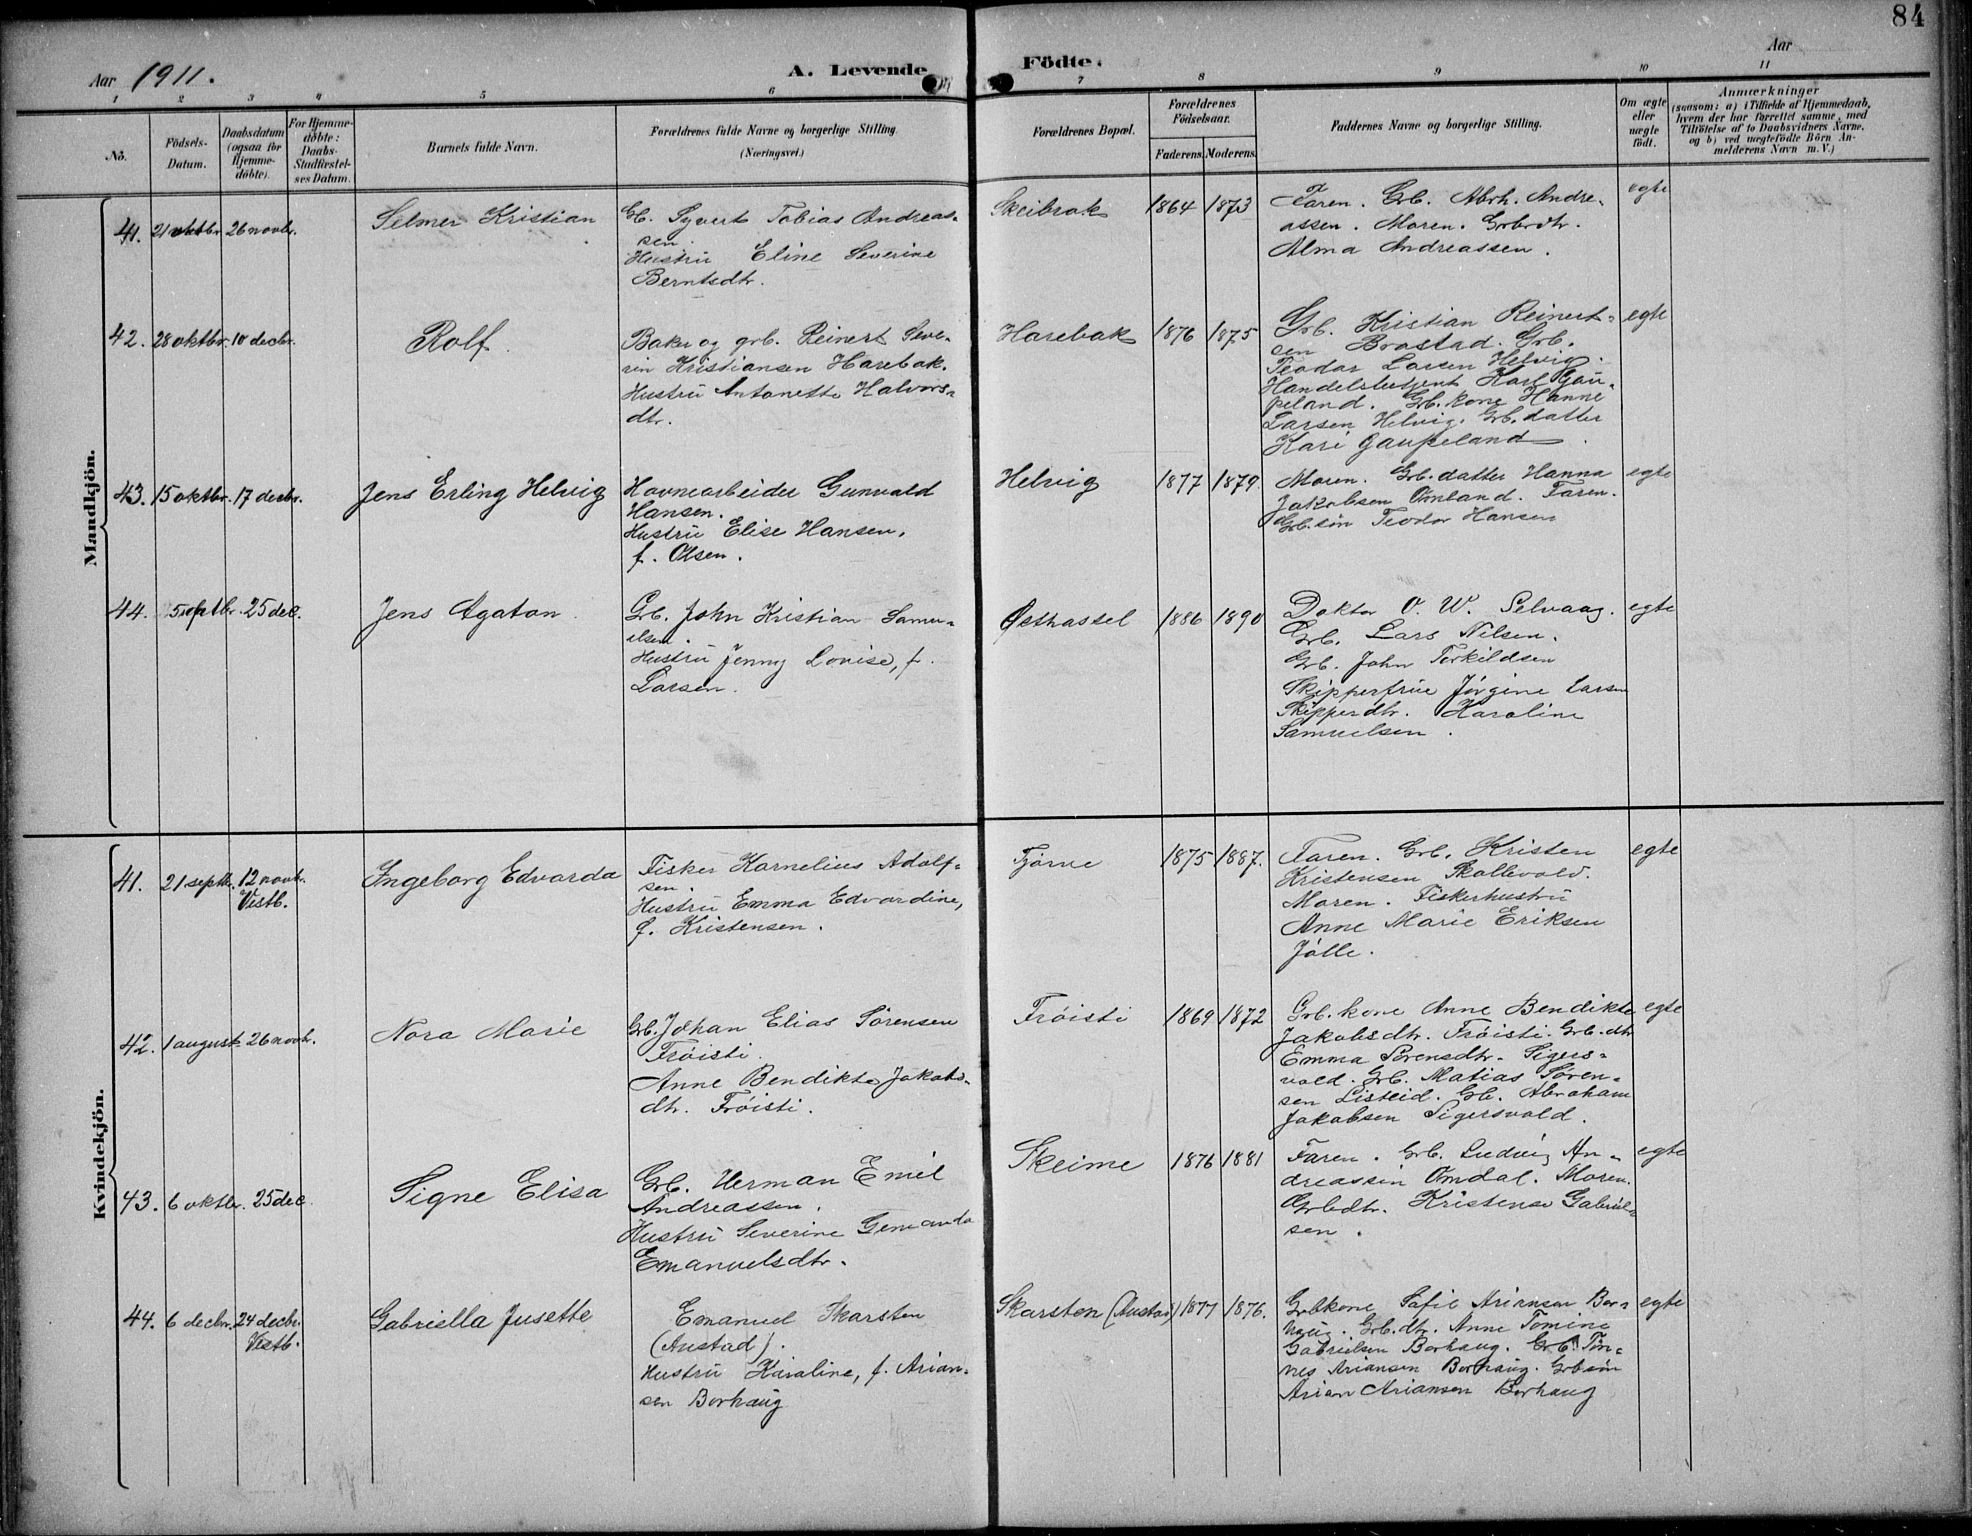 84
Aar 1911.
A. Levende Födte.
Aar
1 2 3 4 5 6 7 8 9 10 11
No.
Födsels-Datum.
Daabsdatum (ogsaa för Hjemme-döbte).
For Hjemme-döbte: Daabs-Stadfæstel-ses Datum.
Barnets fulde Navn.
Forældrenes fulde Navne og borgerlige Stilling.
(Næringsvei.)
Forældrenes Bopæl.
Forældrenes Födselsaar.
Faderens. Moderens.
Faddernes Navne og borgerlige Stilling.
Om ægte eller uægte födt.
Anmærkninger
(saasom: a) i Tilfælde af Hjemmedaab,
hvem der har forrettet samme, med
Tilföielse af to Daabsvidners Navne,
og b) ved uægtefödte Börn An-
melderens Navn m. V.)
Mandkjön.
41. 21 oktbr. 26 novbr.
Selmer Kristian
Gb. Syvert Tobias Andreas-
sen.
Hustru Eline Severine
Berntsdtr.
Skeibrok
1864 1873
Faren. Grb. Abrh. Andre-
assen. Moren. Grbrdtr.
Alma Andreassen.
egte
42. 28 oktbr. 10 decbr.
Rolf.
Baker og grb. Reinert Seve-
rin Kristiansen Harebak.
Hustru Antonette Halvors-
dtr.
Harebak
1876 1875
Grb. Kristian Reinert-
sen Brastad. Grb.
Teodor Larsen Helvig.
Handelsbetjent Karl Gau-
peland. Grb. kone Hanne
Larsen Helvig. Grb. datter
Kari Gaupeland.
egte
43. 15 oktbr. 17 decbr.
Jens Erling Helvig
Havnearbeider Gunvald
Hansen.
Hustru Elise Hansen,
f. Olsen.
Helvig
1877 1879.
Moren. Grb. datter Hanna
Jakobsen Omland. Faren.
Grb. søn Teodor Hansen
egte
44. 5 septbr. 25 dec.
Jens Agaton.
Grb. John Kristian Samu-
elsen.
Hustru Jenny Lovise, f.
Larsen.
Østhassel
1886 1890
Doktor O. W. Selvaag.
Grb. Lars Nilsen.
Grb. John Terkildsen
Skipperfrue Jørgine Larsen
Skipperdtr. Karoline
Samuelsen.
egte
Kvindekjön.
41. 21 septbr. 12 novbr.
Vestb.
Ingeborg Edvarda
Fisker Kornelius Adolf-
sen.
Hustru Emma Edvardine,
f. Kristensen.
Tjørve
1875 1887.
Faren. Grb. Kristen
Kristensen Skollevold.
Moren. Fiskerhustru
Anne Marie Eriksen
Jölle.
egte
42. 1 august. 26 novbr.
Nora Marie
Grb. Johan Elias Sørensen
Frøisti.
Anne Bendikte Jakobs-
dtr. Frøisti.
Frøisti
1869 1872
Grb. kone Anne Bendikte
Jakobsdtr. Frøisti. Grb. dtr
Emma Sørensdtr. Sigers-
vold. Grb. Matias Søren-
sen Listeid. Grb. Abraham
Jakobsen Sigersvold.
egte
43. 6 oktbr. 25 dec.
Signe Elisa
Grb. Herman Emil
Andreassen.
Hustru Severine
Emanuelsdtr.
Skeime
1876 1881
Faren. Grb. Ludvig An-
dreassen Omdal. Moren.
Grbdtr. Kristense Gabriel-
sen.
egte
44. 6 decbr. 24 decbr.
Vestb.
Gabriella Jusette
Emanuel Skarsten
(Austad).
Hustru Karoline, f. Arian-
sen Borhaug
Skarsten (Austad)
1877 1876.
Grbkone Sofie Ariansen Bor-
haug. Grb. dtr. Anne Tomine
Gabrielsen Borhaug. Grb. Tøn-
nes Ariansen Borhaug. Grb søn
Arian Ariansen Borhaug
egte